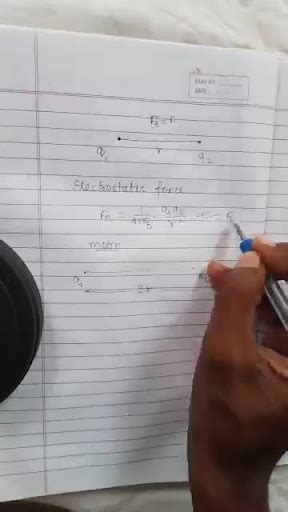 PAGE NO.
DATE
q₁ r q₂
Electrostatic force
Fe = 1/4πε₀ · q₁q₂/r²
moon
q₁
2r